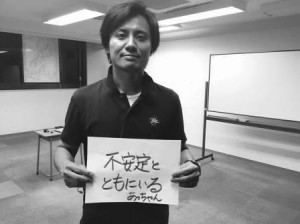 不安定と
ともにいる
あっちゃん